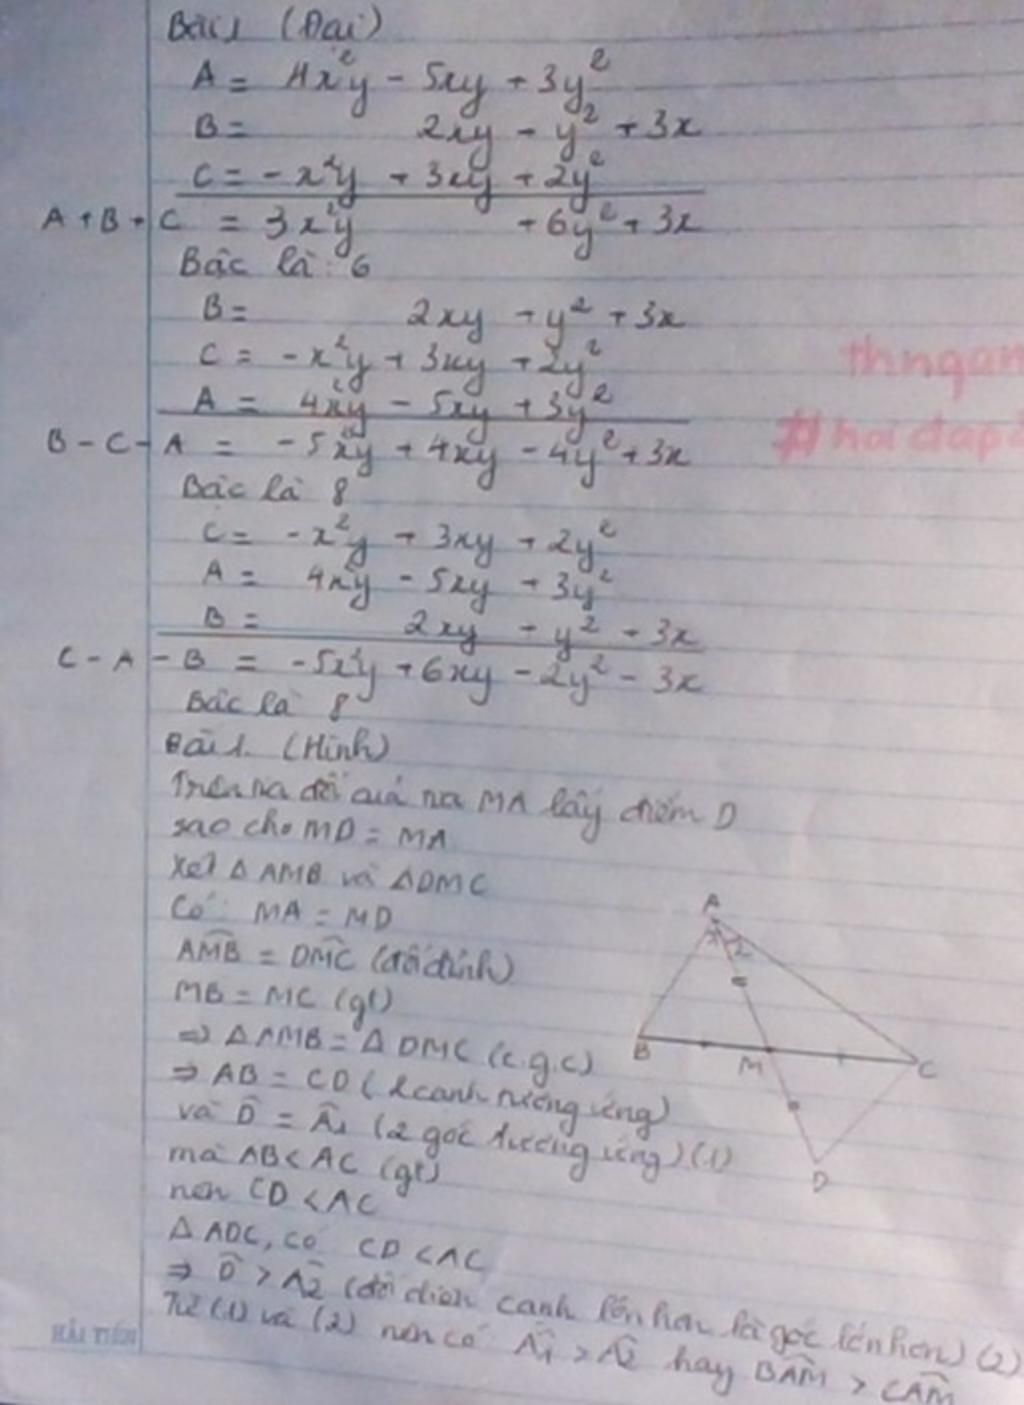 Bài 1 (Đại)
A = 4x²y - 5xy + 3y²
B = 2xy - y² + 3x
C = -x²y + 3xy + 2y²
A + B + C = 3x²y + 6y² + 3x
Bậc là : 6
B = 2xy + y² + 3x
C = -x²y + 3xy + 2y²
thngan
A = 4x²y - 5xy + 3y²
B - C - A = -5x²y + 4xy - 4y² + 3x
#hoidap
Bậc là 8
C = -x²y + 3xy + 2y²
A = 4x²y - 5xy + 3y²
B = 2xy - y² + 3x
C - A - B = -5x²y + 6xy - 2y² - 3x
Bậc là 8
Bài 1. (Hình)
Trên tia đối của tia MA lấy điểm D
sao cho MD = MA
Xét Δ AMB và ΔDMC
Có : MA = MD
AMB = DMC (đối đỉnh)
MB = MC (gt)
⇒ Δ AMB = Δ DMC (c.g.c)
⇒ AB = CD (2 cạnh tương ứng)
và D̂ = Â1 (2 góc tương ứng) (1)
mà AB < AC (gt)
nên CD < AC
Δ ADC, có CD < AC
⇒ D̂ > Â2 (đối diện cạnh lớn hơn là góc lớn hơn) (2)
Từ (1) và (2) nên có Â1 > Â2 hay BAM > CAM
HẢI TIẾN
A
2
B
M
C
D